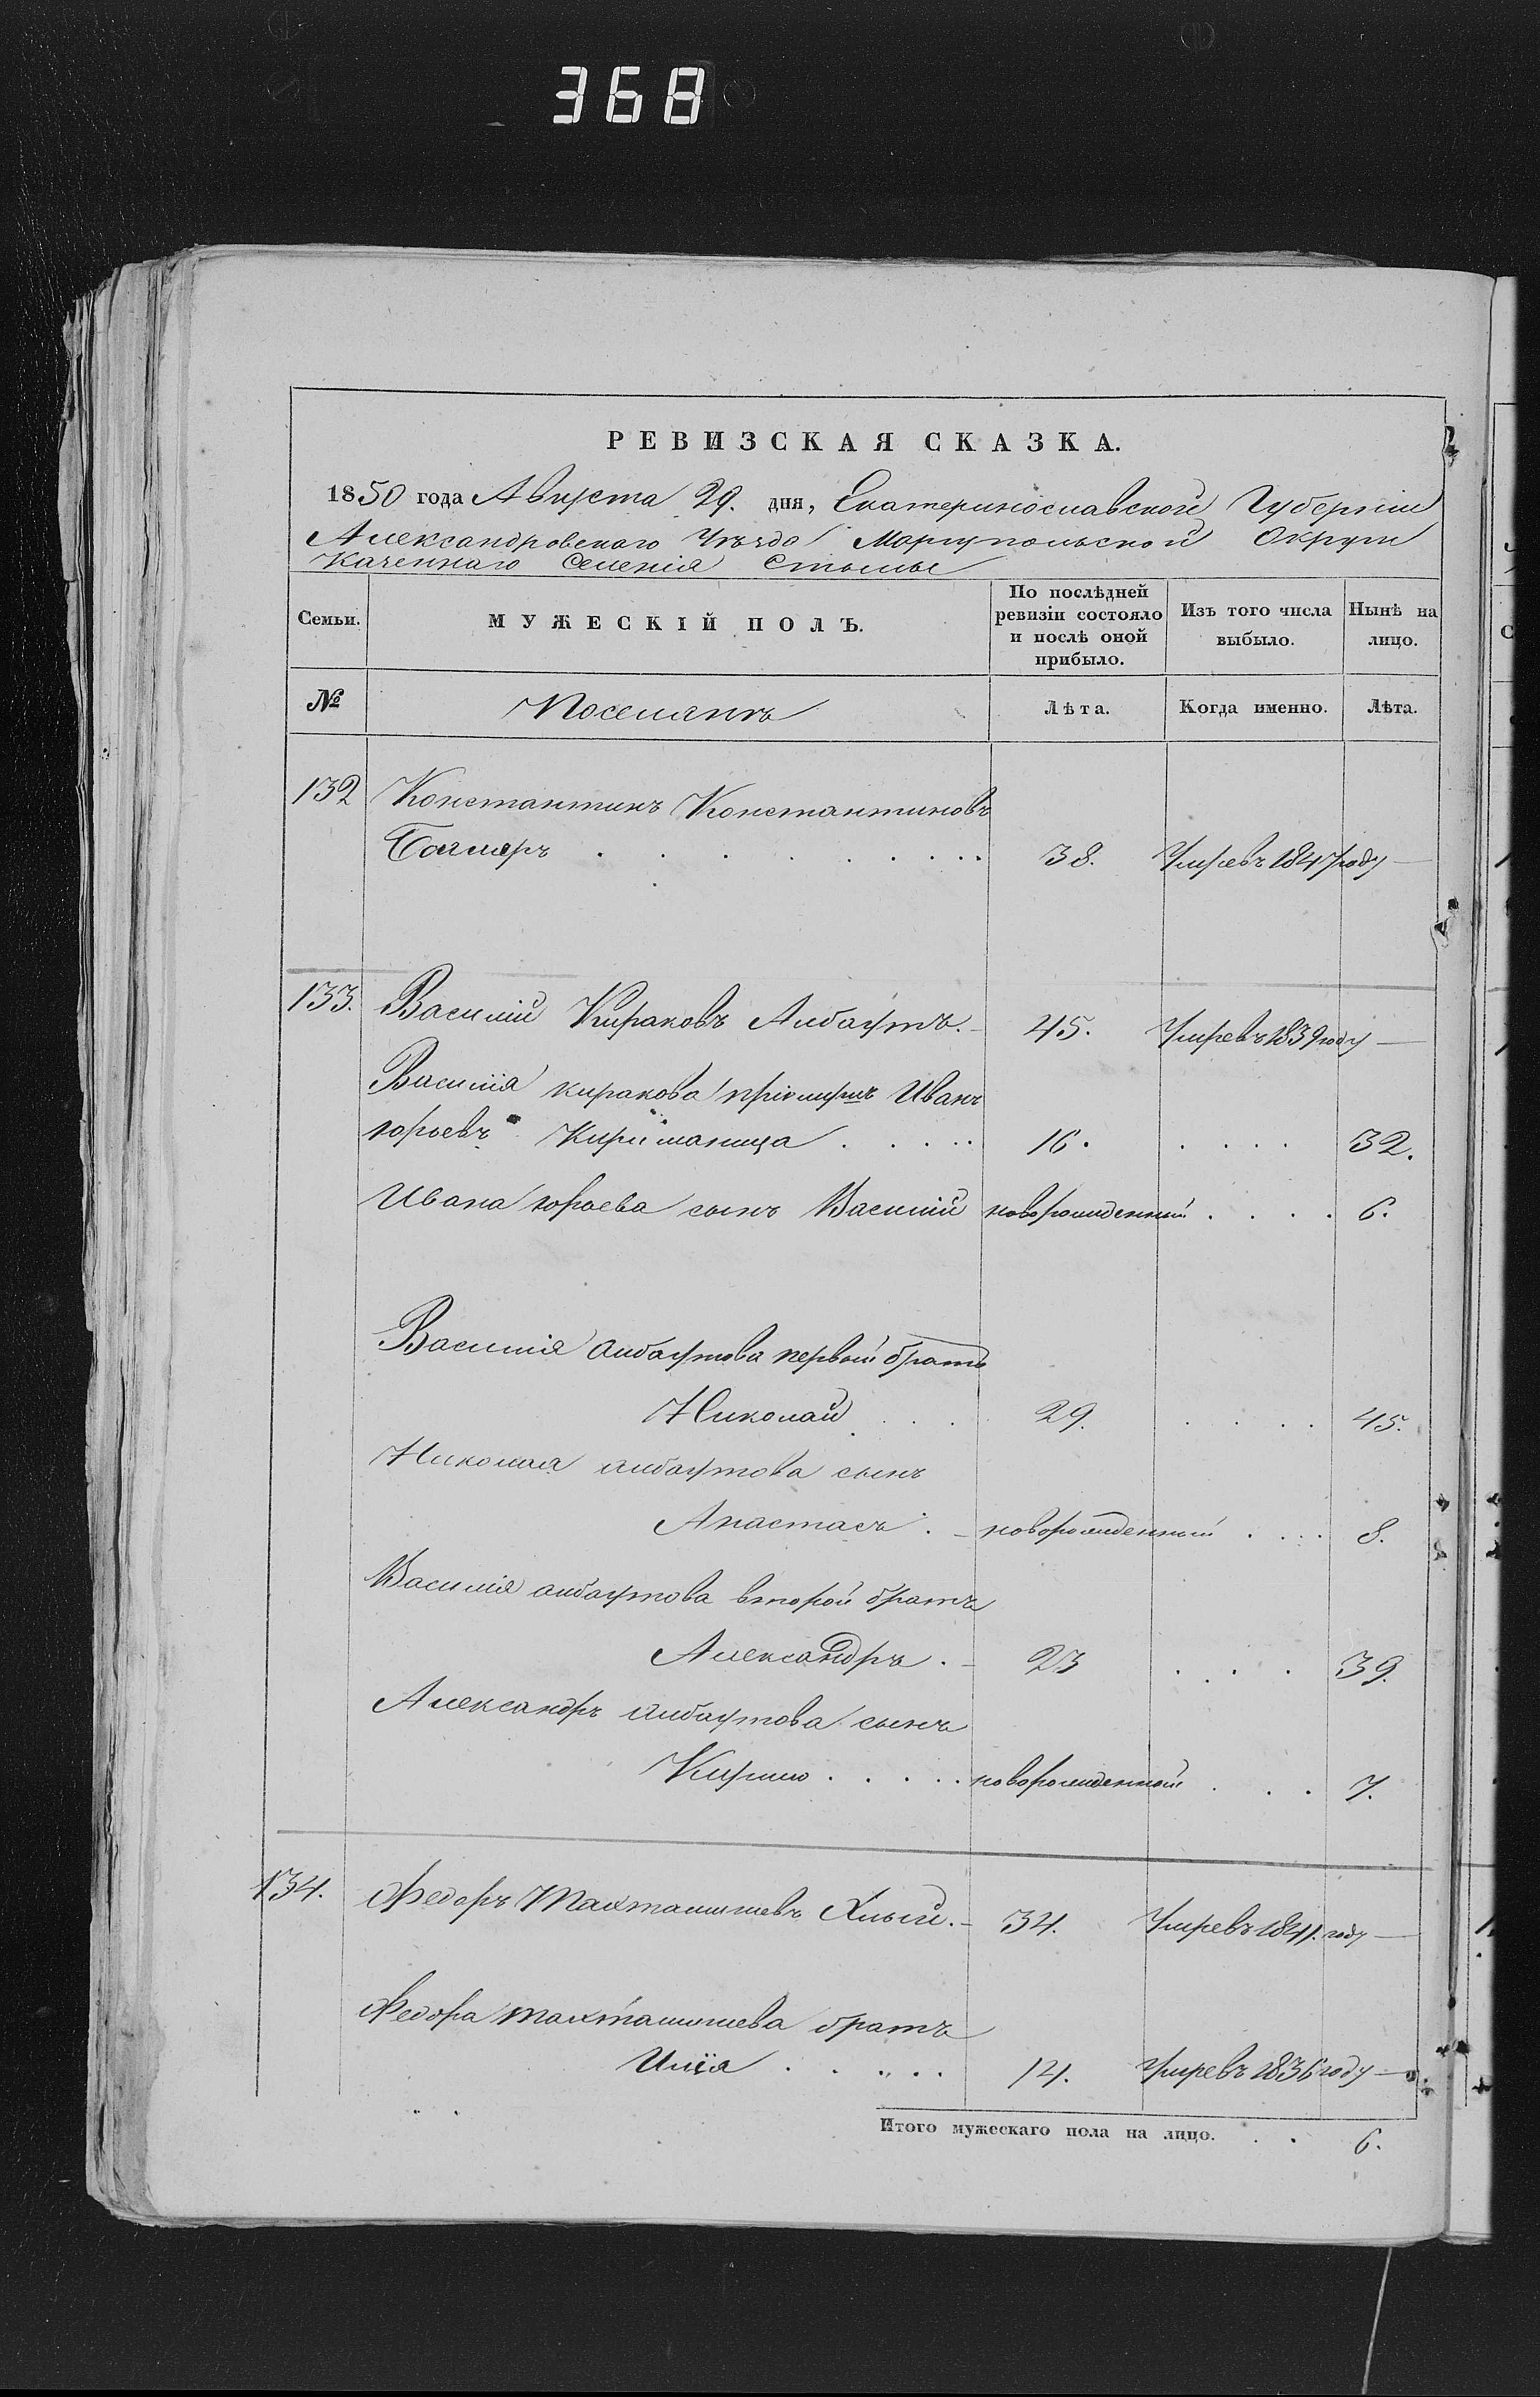 368
РЕВИЗСКАЯ СКАЗКА.
1850 года Августа 29. дня, Екатеринославской Губерніи
Александровскаго Уѣзда Маріупольской Округи
Казеннаго Селенія Стылы
Семьи. МУЖЕСКІЙ ПОЛЪ. По послѣдней ревизіи состояло и послѣ оной прибыло. Изъ того числа выбыло. Нынѣ на лицо.
№ Поселянъ Лѣта. Когда именно. Лѣта.
132 Константинъ Константиновъ
Богляръ 38. Умревъ 1847 году
133. Василій Кираковъ Албаутъ. 45. Умревъ 1839 году
Василія киракова Иванъ
юрьевъ 16. 32.
Ивана юрьева сынъ Василій новорожденный 6.
Василія албаутова первый братъ
Николай 29. 45.
Николая албаутова сынъ
Анастасъ новорожденный 8.
Василія албаутова второй братъ
Александръ 23 39.
Александръ албаутова сынъ
новорожденной 7.
134. Федоръ Тахташшевъ Хлый. 34. Умревъ 1841. году
Федора тахташшева братъ
Илія 14. Умревъ 1836 году
Итого мужескаго пола на лицо. 6.